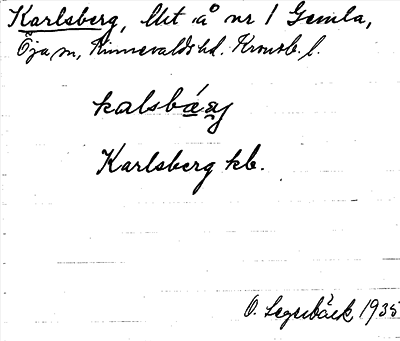 Karlsberg, lht å nr 1 Gemla,
Öja sn, Kinnevalds hd. Kronob. l.
kalsbárj
Karlsberg kb.
O. Segerbäck 1935